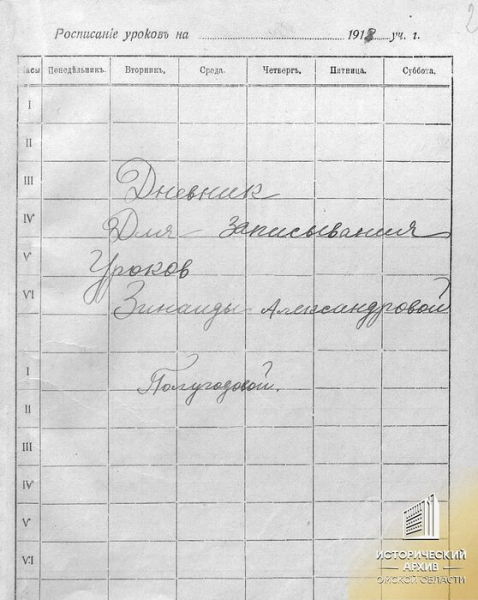 2
Росписаніе уроковъ на 1918 уч. г.
Часы Понедѣльникъ. Вторникъ. Среда. Четвергъ. Пятница. Суббота.
I
II
III
IV
V
VI
Дневник
Для записывания
Уроков
Зинаиды Александровой
Полугодовой.
I
II
III
IV
V
VI
ИСТОРИЧЕСКИЙ
АРХИВ
ОМСКОЙ ОБЛАСТИ